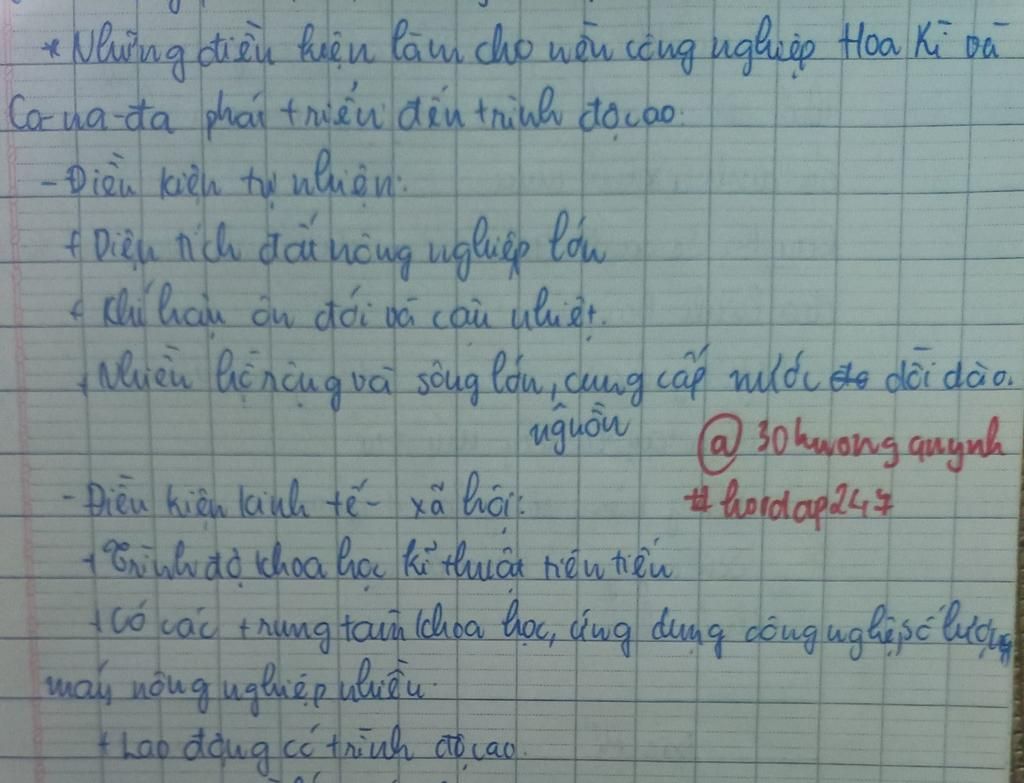 * Những điều kiện làm cho nền công nghiệp Hoa Kì và
Ca-na-đa phát triển đến trình độ cao.
- Điều kiện tự nhiên:
+ Diện tích đất nông nghiệp lớn
+ Khí hậu ôn đới và cận nhiệt.
+ Nhiều hồ rộng và sông lớn, cung cấp nước dồi dào.
nguồn
@ 30huongquynh
- Điều kiện kinh tế - xã hội:
# hoidap247
+ Trình độ khoa học kĩ thuật tiên tiến
+ Có các trung tâm khoa học, ứng dụng công nghệ, số lượng
máy nông nghiệp nhiều.
+ Lao động có trình độ cao.